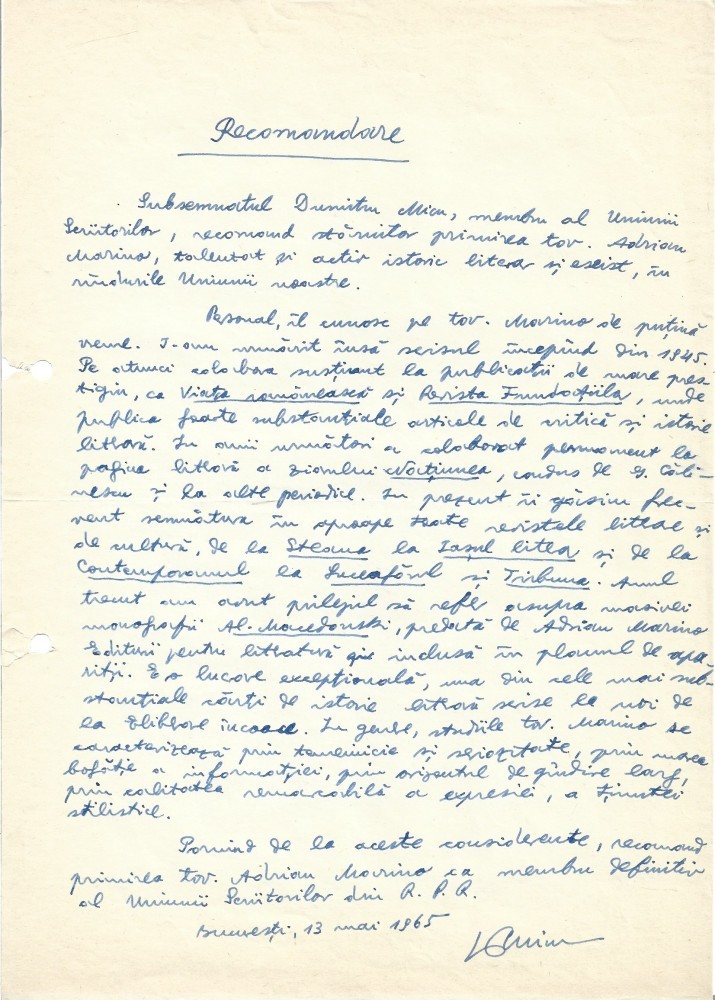 Recomandare
Subsemnatul Dumitru Micu, membru al Uniunii
Scriitorilor, recomand stăruitor primirea tov. Adrian
Marino, talentat și activ istoric literar și eseist, în
rîndurile Uniunii noastre.
Personal, îl cunosc pe tov. Marino de puțină
vreme. I-am urmărit însă scrisul începînd din 1945.
Pe atunci colabora susținut la publicații de mare pres-
tigiu, ca Viața românească și Revista Fundațiilor, unde
publica foarte substanțiale articole de critică și istorie
literară. In anii următori a colaborat permanent la
pagina literară a ziarului Națiunea, condus de G. Căli-
nescu și la alte periodice. In prezent îi găsim frec-
vent semnătura în aproape toate revistele literare și
de cultură, de la Steaua la Iașul literar și de la
Contemporanul la Luceafărul și Tribuna. Anul
trecut am avut prilejul să refer asupra masivei
monografii Al. Macedonski, predată de Adrian Marino
Editurii pentru literatură și inclusă în planul de apa-
riții. E o lucrare excepțională, una din cele mai sub-
stanțiale cărți de istorie literară scrise la noi de
la Eliberare încoace. In genere, studiile tov. Marino se
caracterizează prin temeinicie și seriozitate, prin marea
bogăție a informației, prin orizontul de gîndire larg,
prin calitatea remarcabilă a expresiei, a ținutei
stilistice.
Pornind de la aceste considerente, recomand
primirea tov. Adrian Marino ca membru definitiv
al Uniunii Scriitorilor din R. P. R.
București, 13 mai 1965
DMicu